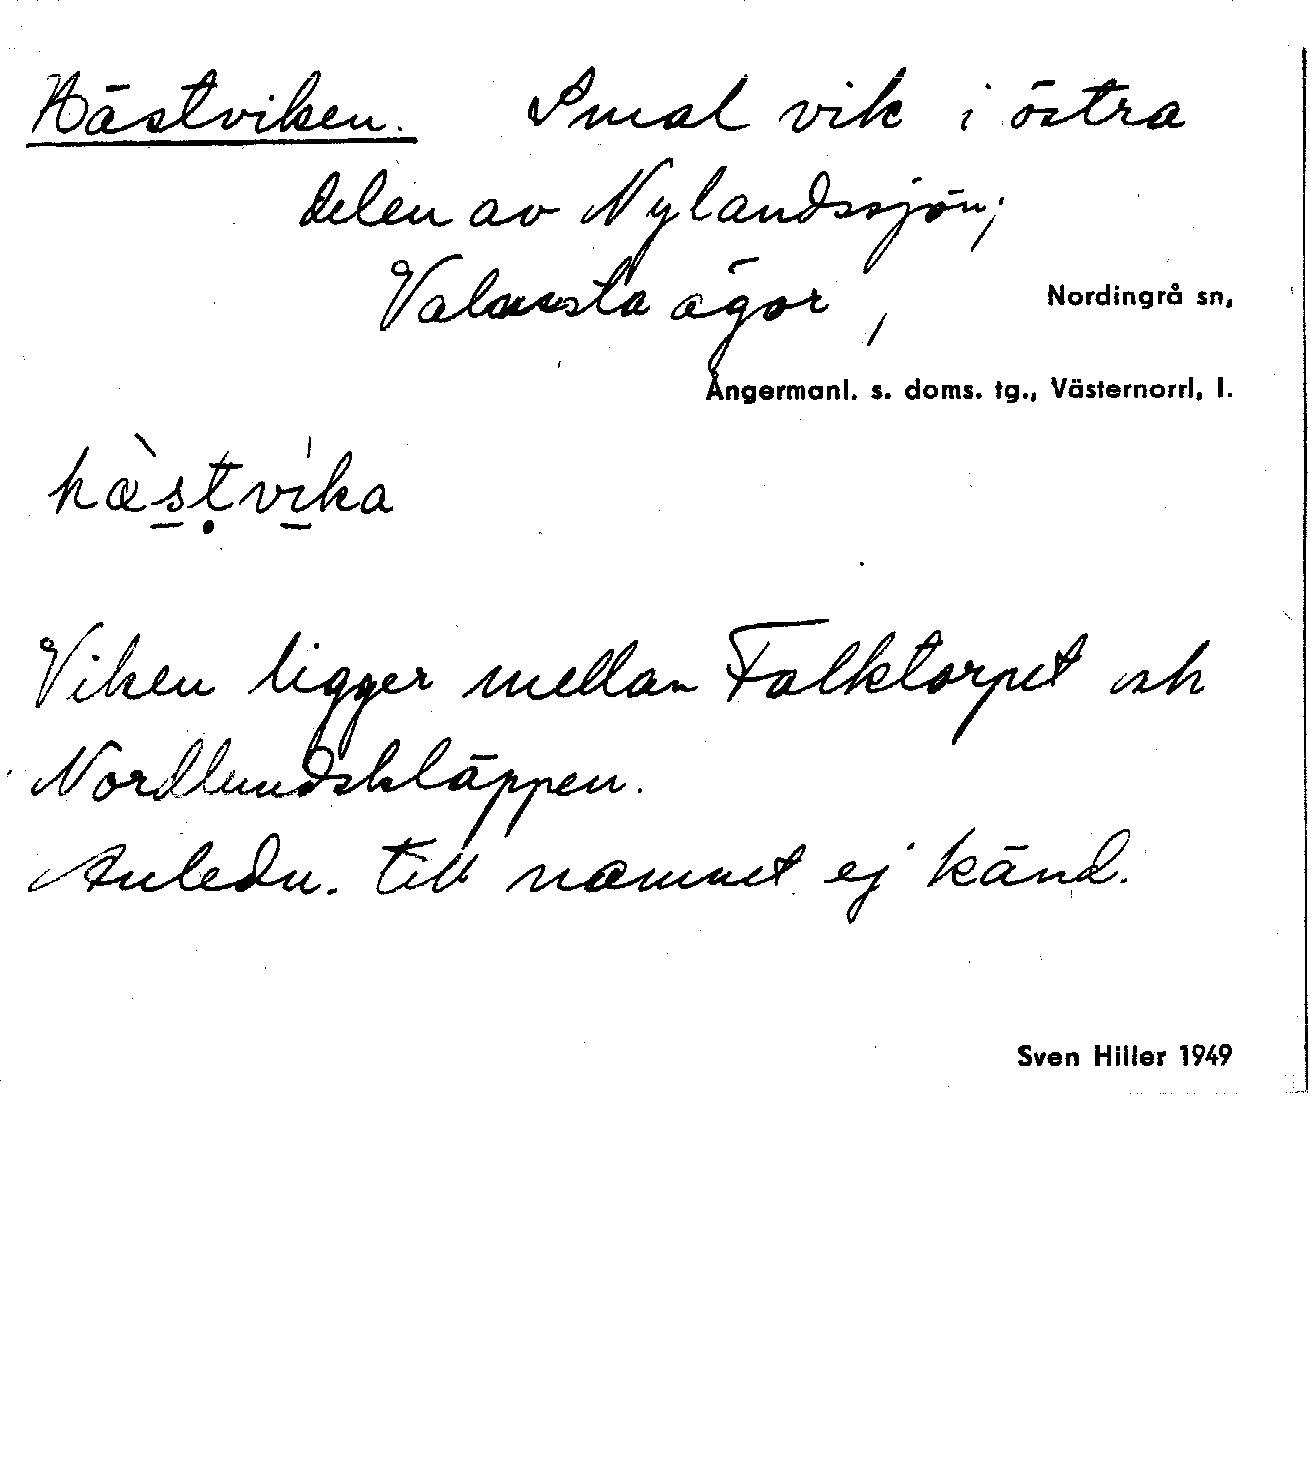 Hästviken. Smal vik i östra
delen av Nylandssjön;
ägor, Nordingrå sn,
Ångermanl. s. doms. tg., Västernorrl. l.
hæ̀stvika
Viken ligger mellan Falktorpet och
Nordlundskläppen.
Anledn. till namnet ej känd.
Sven Hiller 1949